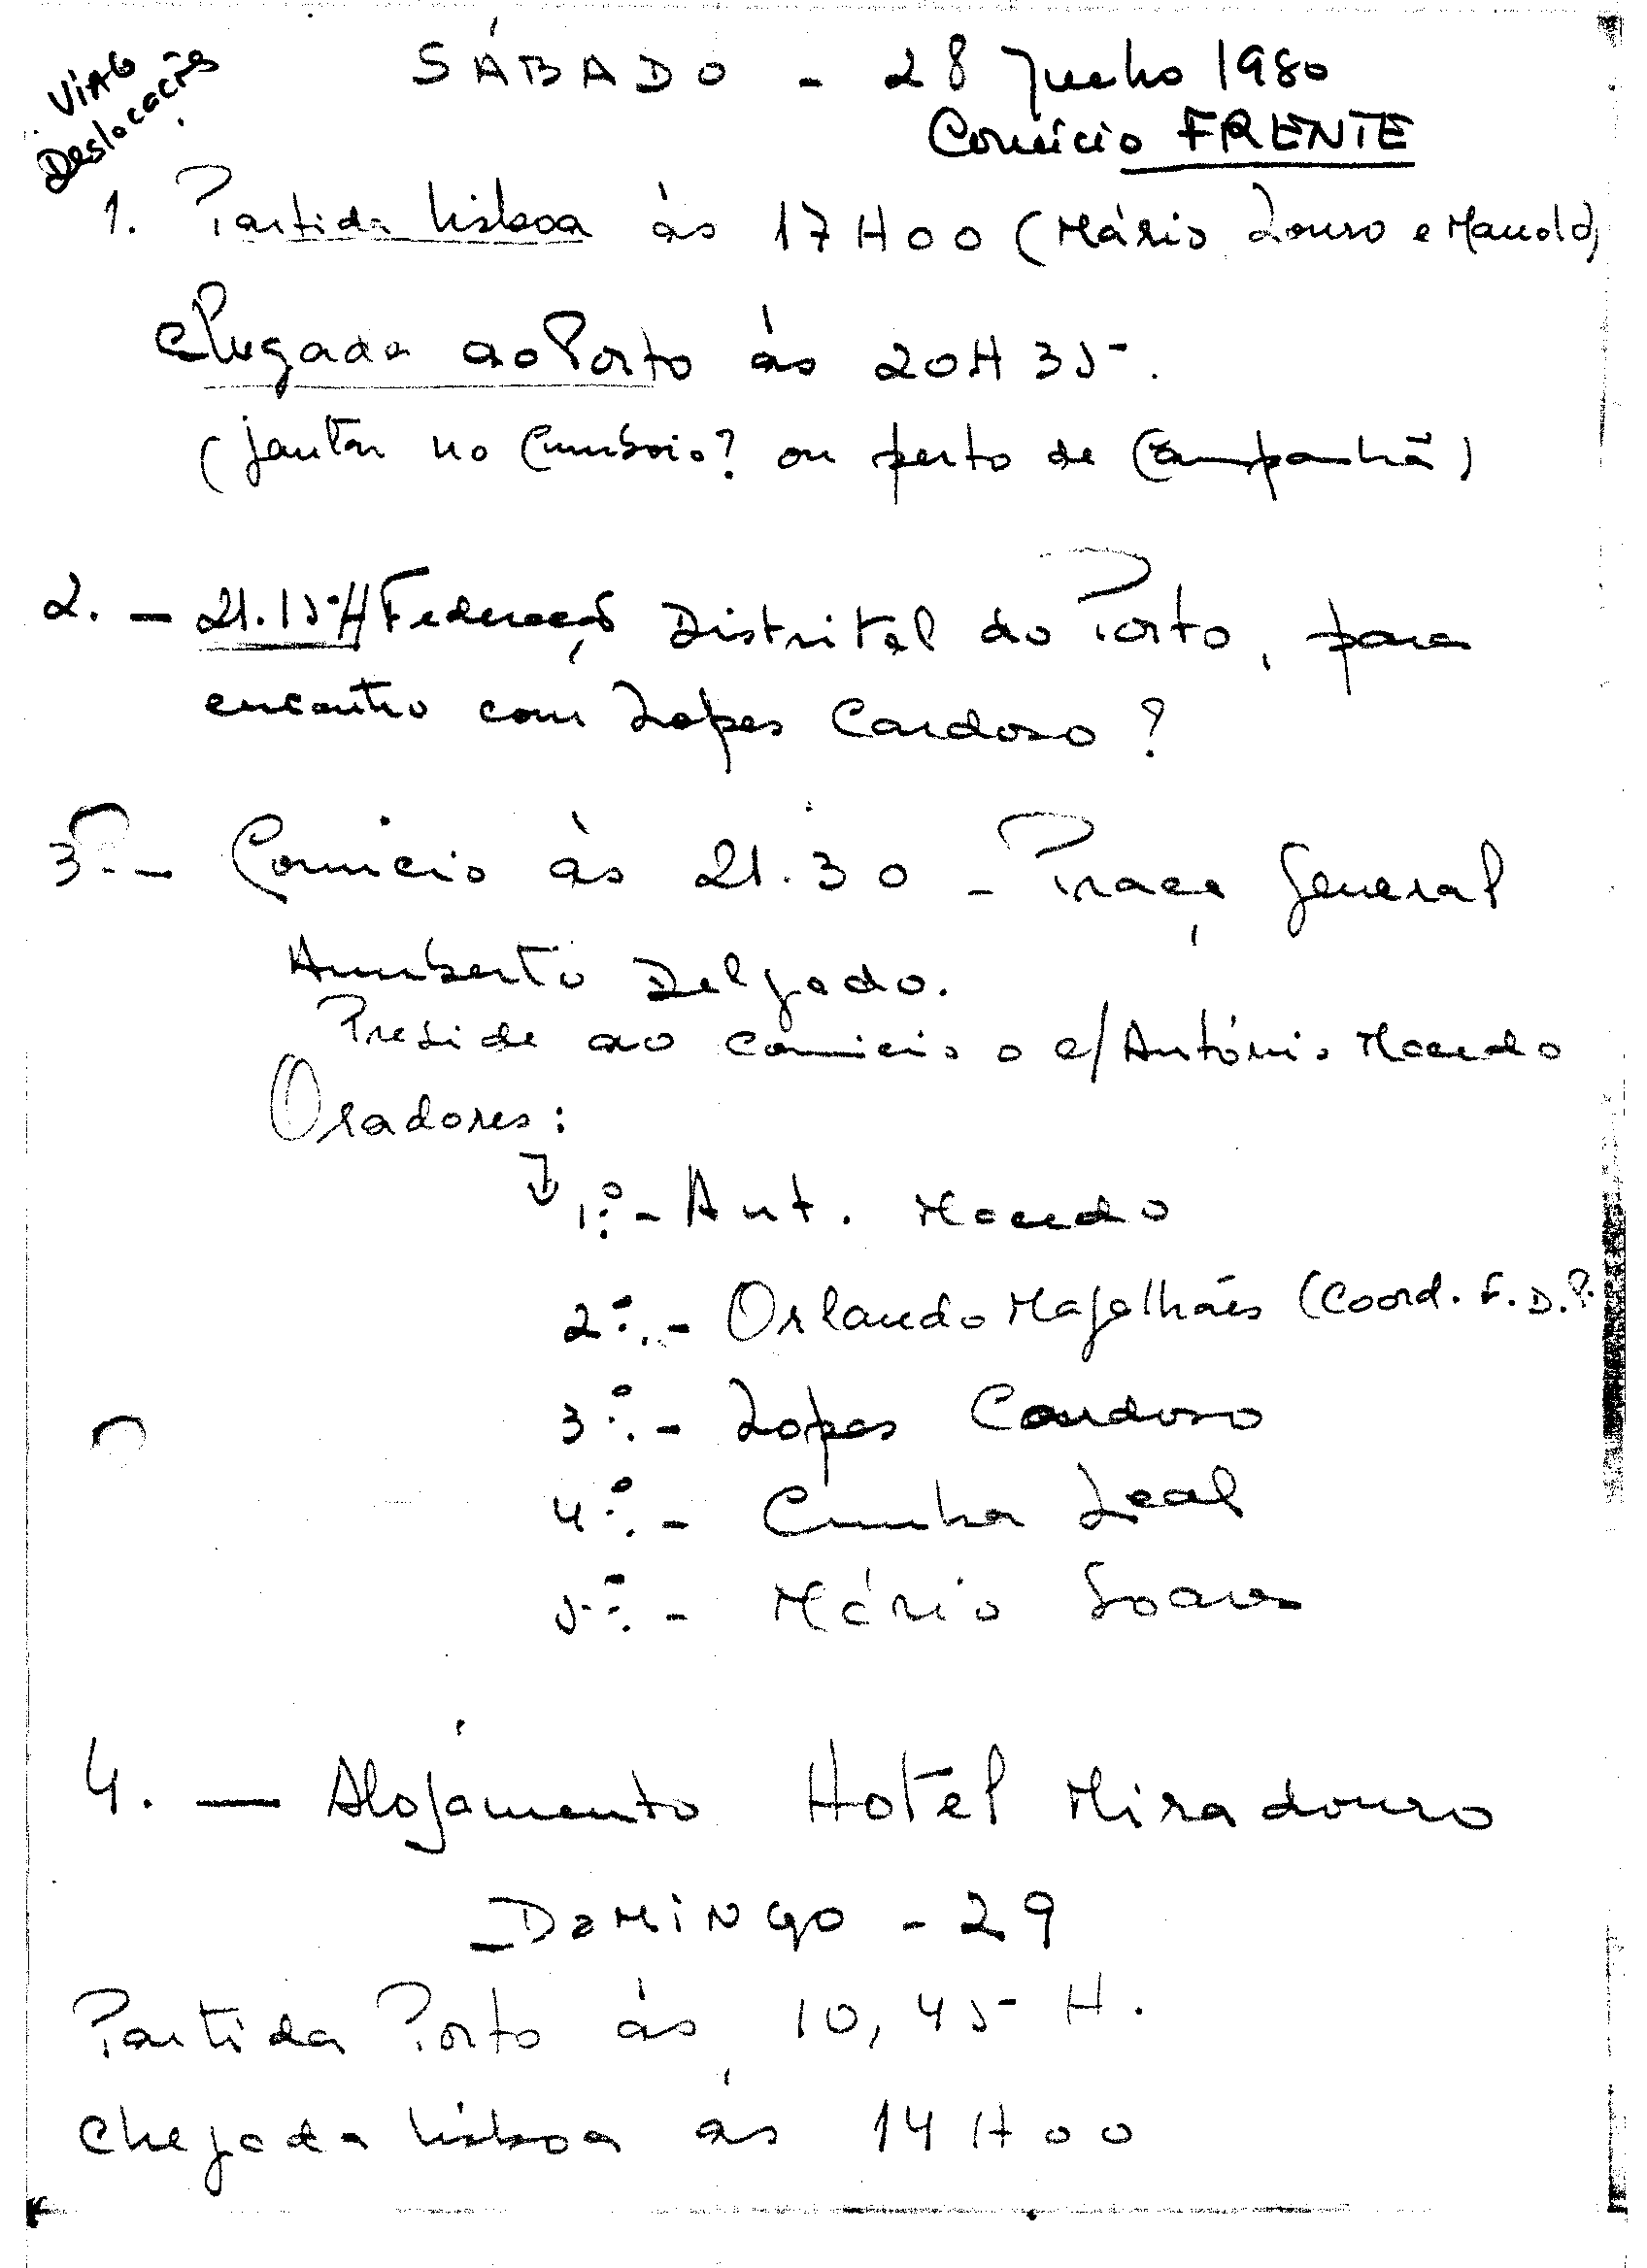 VIAG
Deslocações
SÁBADO - 28 Junho 1980
Comício FRENTE
1. Partida Lisboa às 17H00 (Mário Louro e Manolo)
Chegada ao Porto às 20H35.
(jantar no Comboio? ou perto de Campanhã)
2. - 21.15H Federação Distrital do Porto, para
encontro com Lopes Cardoso?
3. - Comício às 21.30 - Praça General
Humberto Delgado.
Preside ao comício o c/ António Macedo
Oradores:
1º. - Ant. Macedo
2º. - Orlando Magalhães (Coord. F.D.P.
3º. - Lopes Cardoso
4º. - Cunha Leal
5º. - Mário Soares
4. - Alojamento Hotel Miradouro
DOMINGO - 29
Partida Porto às 10,45 H.
Chegada Lisboa às 14H00